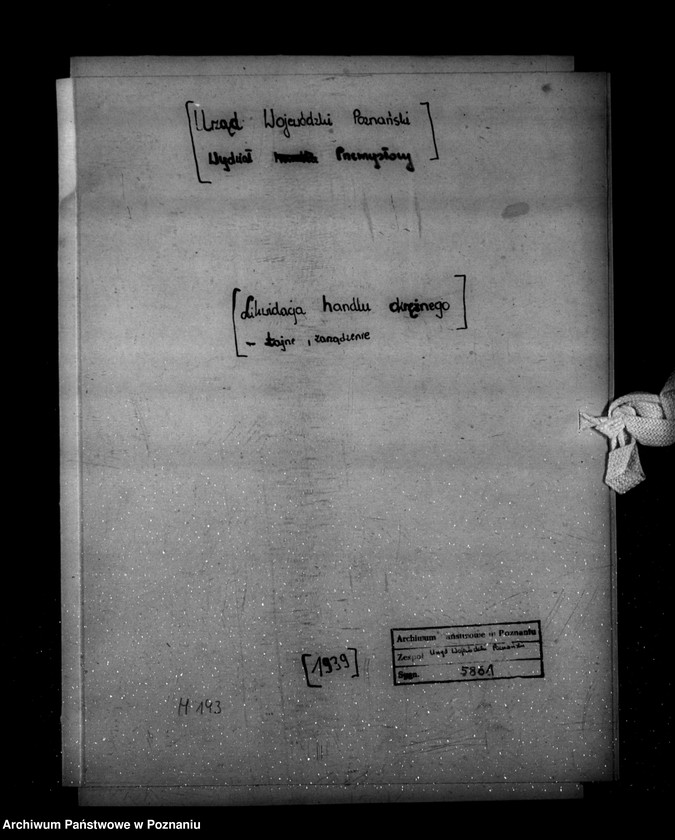 [Urząd Wojewódzki Poznański
Wydział Przemysłowy]
[Likwidacja handlu okrężnego
- tajne, zarządzenie]
[1939]
M. 143
Archiwum Państwowe w Poznaniu
Zespół Urząd Wojewódzki Poznański
Sygn. 5861
Archiwum Państwowe w Poznaniu